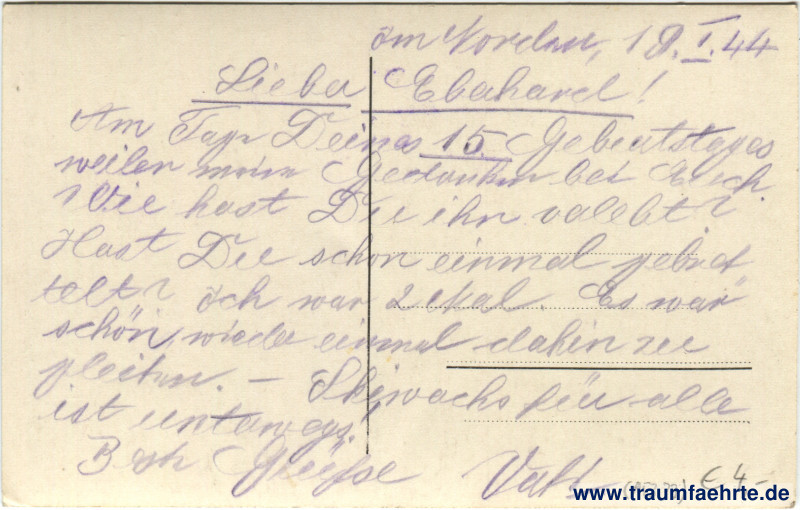 Im Norden, 18.I.44
Lieber Eberhard!
Am Tage Deines 15. Geburtstages
weilen meine Gedanken bei Euch.
Wie hast Du ihn verlebt?
Hast Du schon einmal gebret
telt? Ich war 2 Mal. Es war
schön, wieder einmal dahin zu
gleiten. – Skiwachs für alle
ist unterwegs!
Grüße Vati
€ 4.-
www.traumfaehrte.de